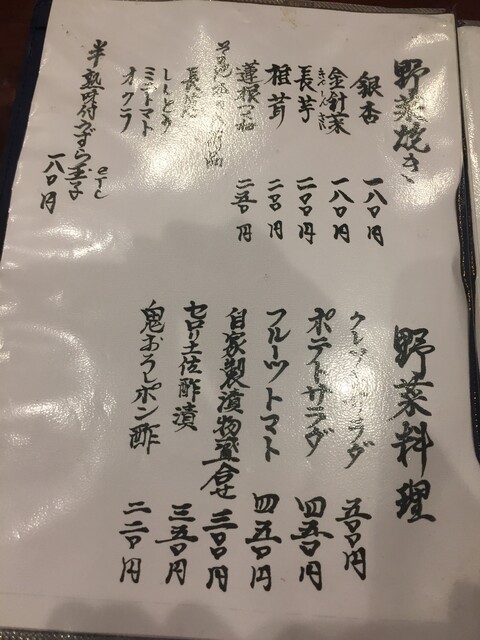 野菜焼き
銀杏 一八〇円
金針菜 一八〇円
長芋 二〇〇円
椎茸 二〇〇円
蓮根 二五〇円
長葱
ししとう
ミニトマト
オクラ
半熟味付うずら玉子 一八〇円
野菜料理
サラダ 五〇〇円
ポテトサラダ 四五〇円
フルーツトマト 四五〇円
自家製漬物盛合せ 三〇〇円
セロリ土佐酢漬 三五〇円
鬼おろしポン酢 二二〇円